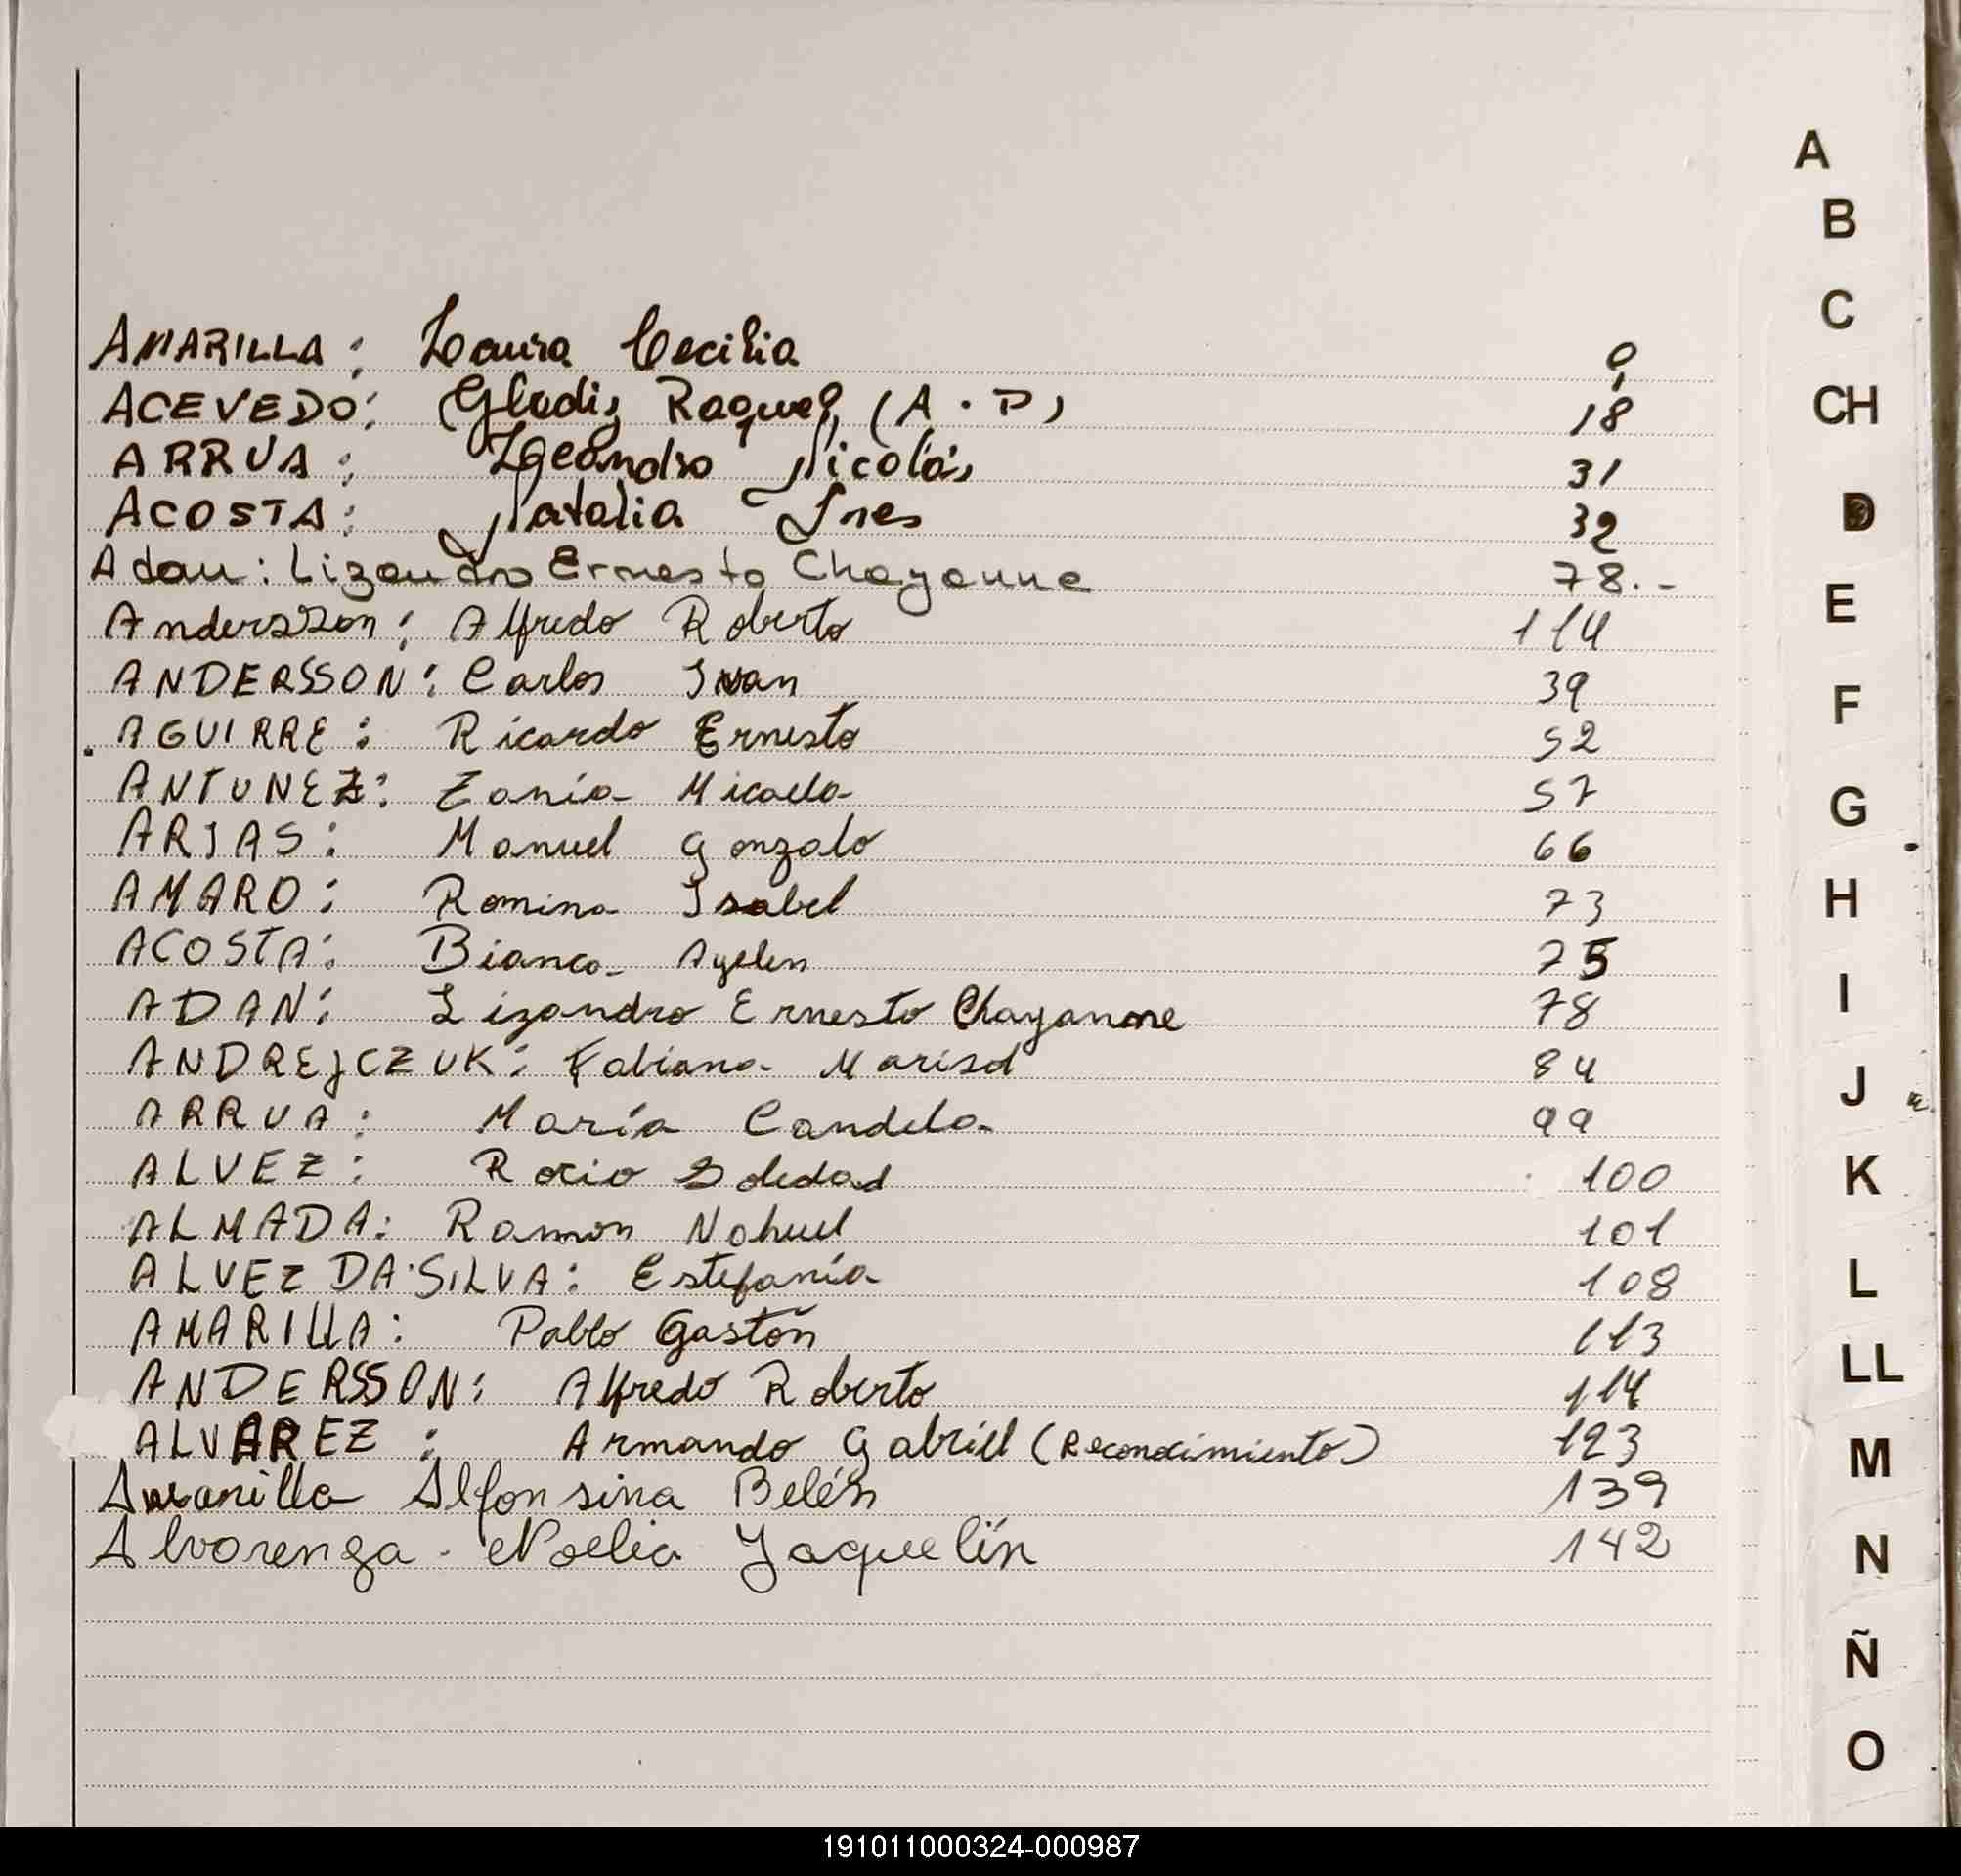 AMARILLA: Laura Cecilia 9
ACEVEDO: Gladis Raquel (A. P) 18
ARRUA: Leandro Nicolás 31
ACOSTA: Natalia Ines 32
Adan: Lizandro Ernesto Chayanne 78.-
Andersson: Alfredo Roberto 114
ANDERSSON: Carlos Ivan 39
AGUIRRE: Ricardo Ernesto 52
ANTUNEZ: Zanía Micaela 57
ARIAS: Manuel Gonzalo 66
AMARO: Romina Isabel 73
ACOSTA: Bianca Ayelen 75
ADAN: Lizandro Ernesto Chayanne 78
ANDREJCZUK: Fabiana Marisol 84
ARRUA: María Candela 99
ALVEZ: Rocio Soledad 100
ALMADA: Ramon Nahuel 101
ALVEZ DA SILVA: Estefanía 108
AMARILLA: Pablo Gastón 113
ANDERSSON: Alfredo Roberto 114
ALVAREZ: Armando Gabriel (Reconocimiento) 123
Amarilla Alfonsina Belén 139
Alvarenga - Noelia Jaquelín 142
A
B
C
CH
D
E
F
G
H
I
J
K
L
LL
M
N
Ñ
O
191011000324-000987